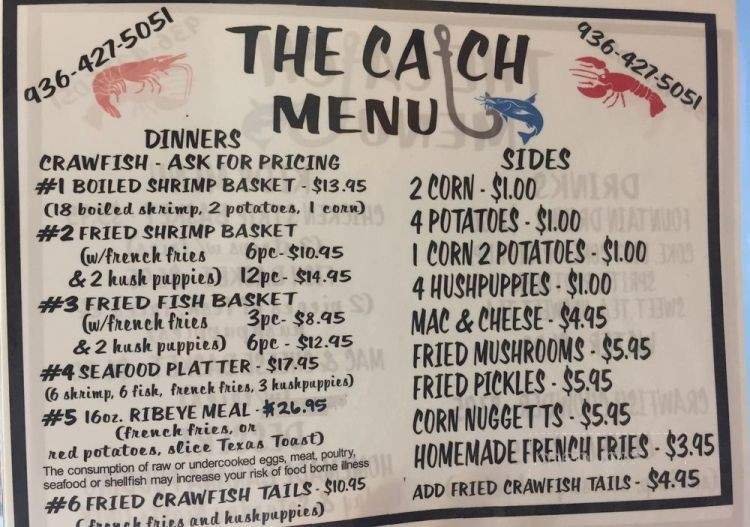 936-427-5051
THE CATCH
936-427-5051
MENU
DINNERS
CRAWFISH - ASK FOR PRICING
#1 BOILED SHRIMP BASKET - $13.95
(18 boiled shrimp, 2 potatoes, 1 corn)
#2 FRIED SHRIMP BASKET
(w/french fries 6pc- $10.95
& 2 hush puppies) 12pc- $14.95
#3 FRIED FISH BASKET
(w/french fries 3pc- $8.95
& 2 hush puppies) 6pc - $12.95
#4 SEAFOOD PLATTER - $17.95
(6 shrimp, 6 fish, french fries, 3 hushpuppies)
#5 16oz. RIBEYE MEAL - $26.95
(french fries, or
red potatoes, slice Texas Toast)
The consumption of raw or undercooked eggs, meat, poultry,
seafood or shellfish may increase your risk of food borne illness
#6 FRIED CRAWFISH TAILS - $10.95
(french fries and hushpuppies)
SIDES
2 CORN - $1.00
4 POTATOES - $1.00
1 CORN 2 POTATOES - $1.00
4 HUSHPUPPIES - $1.00
MAC & CHEESE - $4.95
FRIED MUSHROOMS - $5.95
FRIED PICKLES - $5.95
CORN NUGGETTS - $5.95
HOMEMADE FRENCH FRIES - $3.95
ADD FRIED CRAWFISH TAILS - $4.95